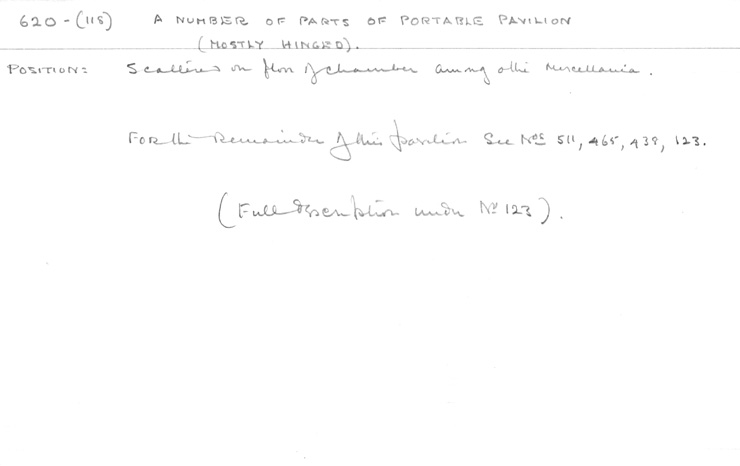 620 - (115) A NUMBER OF PARTS OF PORTABLE PAVILION
(MOSTLY HINGED).
POSITION: Scattered on floor of chamber among other miscellania.
FOR the Remainder of this pavilion See Nos 511, 465, 439, 123.
(Full description under No 123).